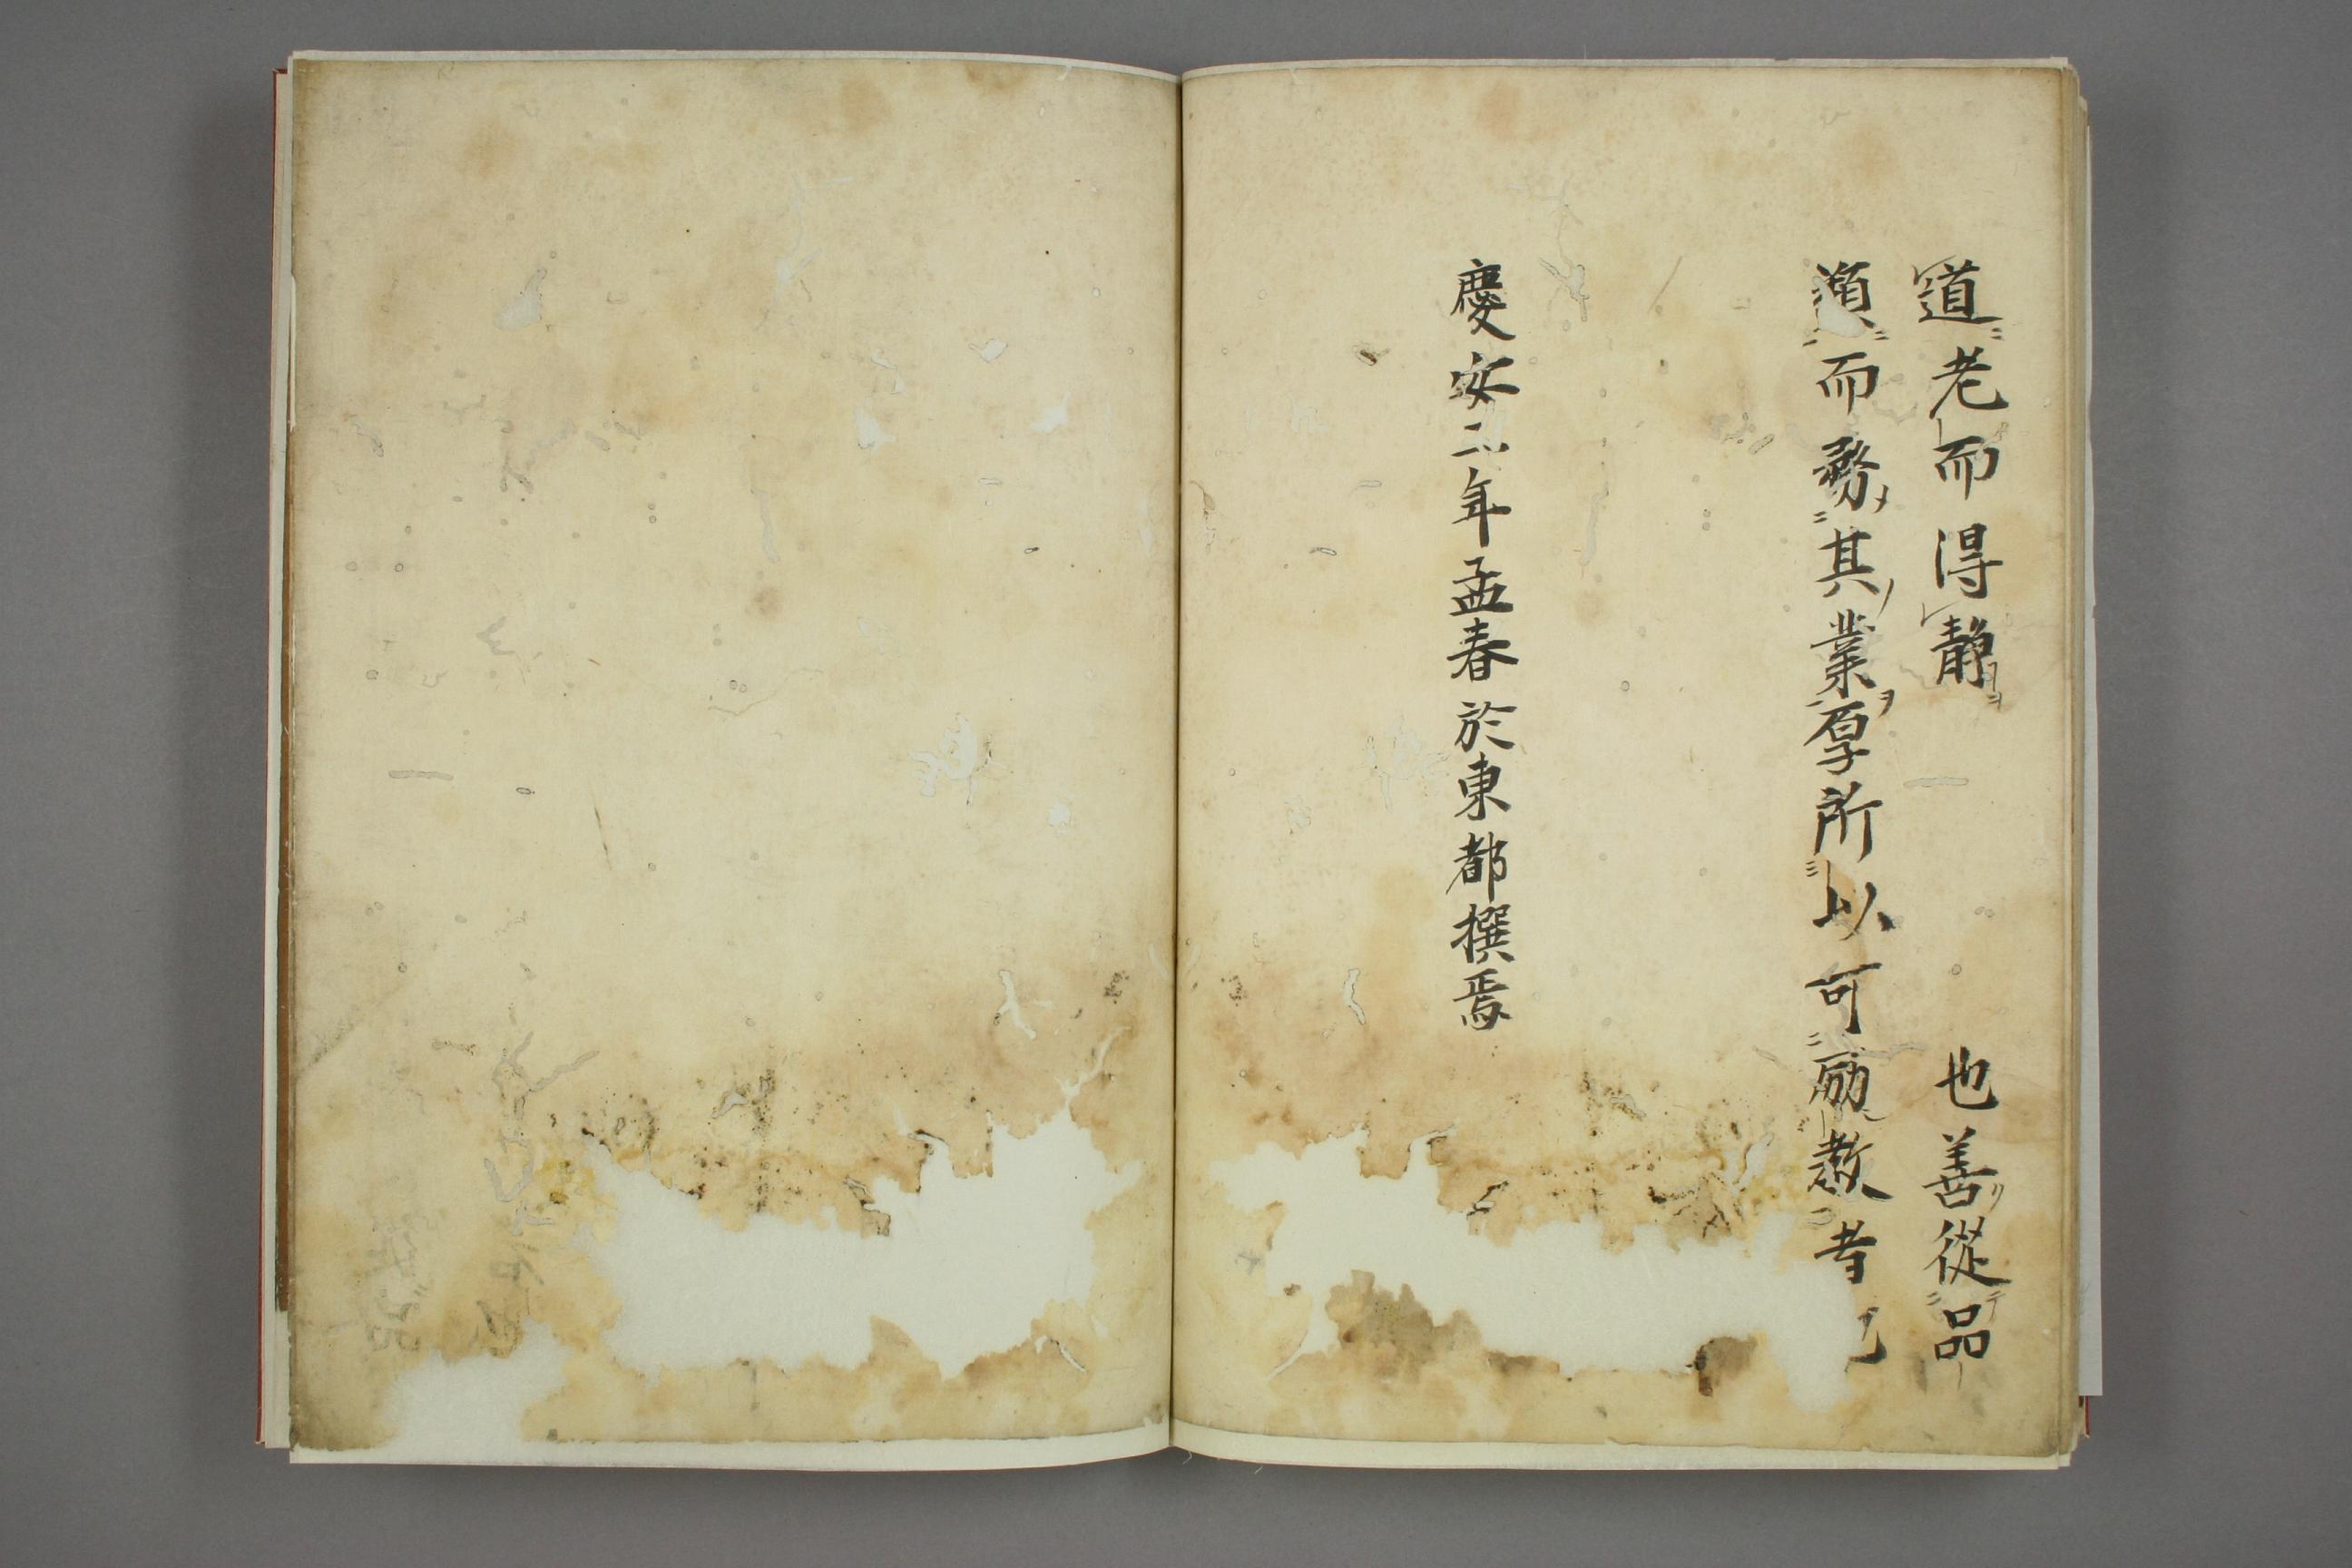 道老而得静也善從品
而務其業厚所以可励教者也
慶安二年孟春於東都撰焉